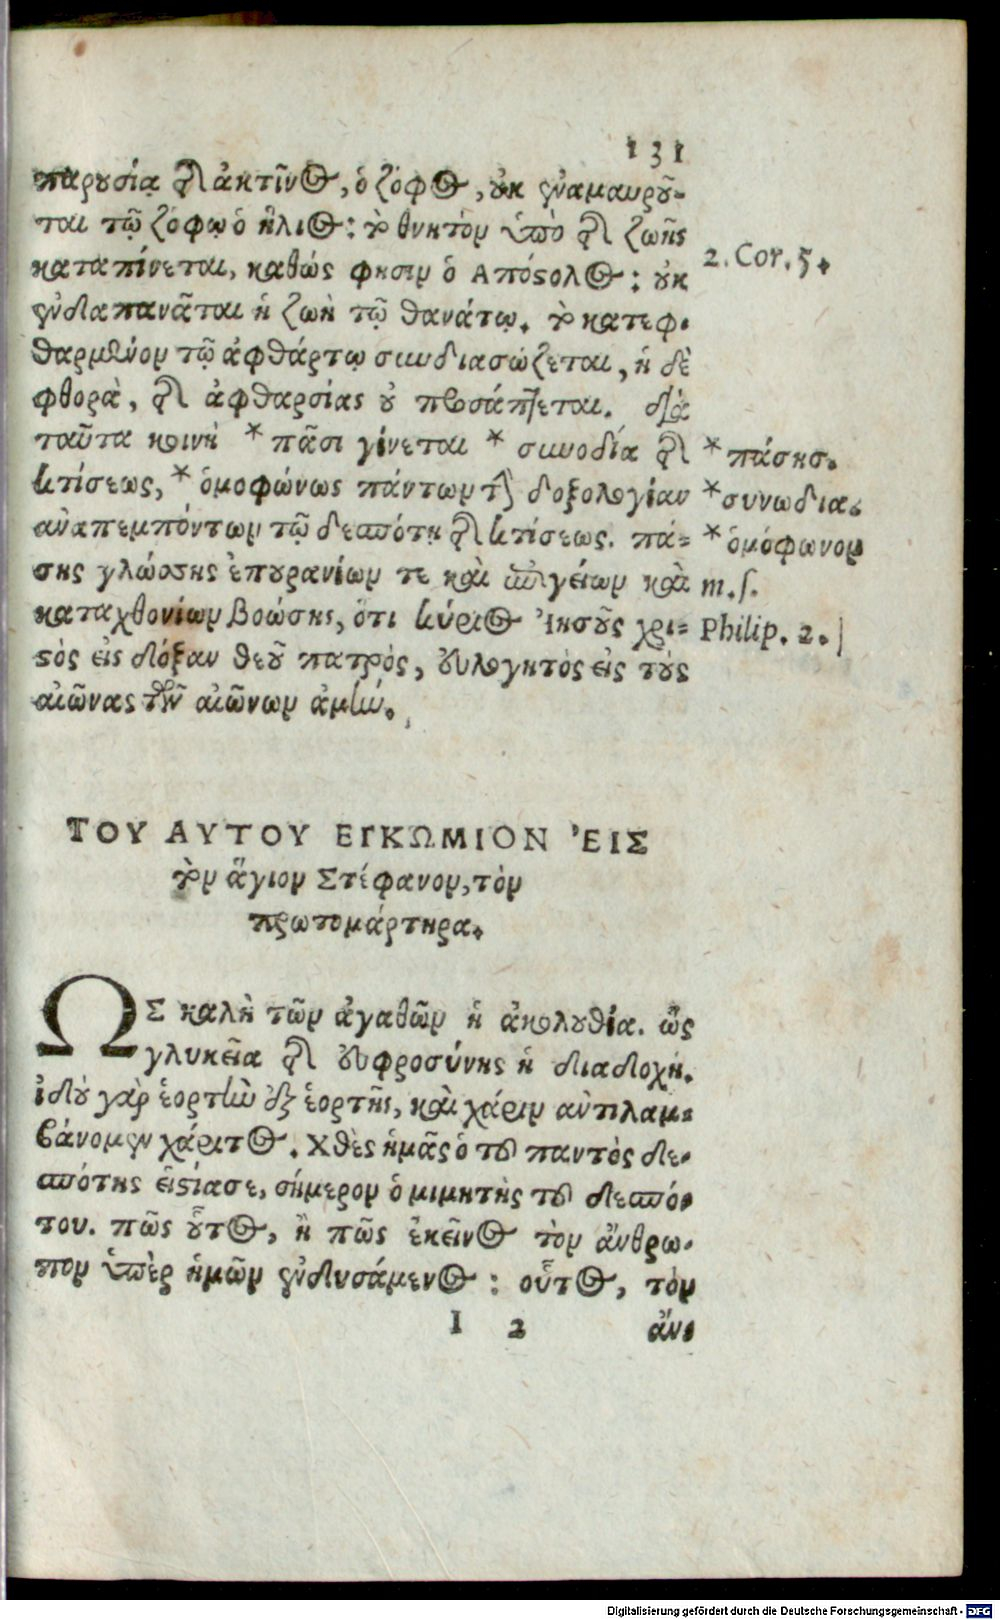 131
παρουσίᾳ τῆς ἀκτῖνος, ὁ ζόφος, οὐκ ἐναμαυροῦ-
ται τῷ ζόφῳ ὁ ἥλιος: τὸ θνητὸν ὑπὸ τῆς ζωῆς
καταπίνεται, καθώς φησιν ὁ Απόστολος: οὐκ
2. Cor. 5.
ἐνδαπανᾶται ἡ ζωὴ τῷ θανάτῳ. τὸ κατεφ-
θαρμένον τῷ ἀφθάρτῳ συνδιασώζεται, ἡ δὲ
φθορὰ, τῆς ἀφθαρσίας οὐ προσάπτεται. διὰ
ταῦτα κοινὴ * πᾶσι γίνεται * συνοδία τῆς
* πάσησ.
κτίσεως, * ὁμοφώνως πάντων τὴν δοξολογίαν
* συνωδια.
ἀναπεμπόντων τῷ δεσπότῃ τῆς κτίσεως. πά-
* ὁμόφωνον
σης γλώσσης ἐπουρανίων τε καὶ ἐπιγείων καὶ
m.s.
καταχθονίων βοώσης, ὅτι κύριος Ἰησοῦς χρι-
Philip. 2.
στὸς εἰς δόξαν θεοῦ πατρὸς, εὐλογητὸς εἰς τοὺς
αἰῶνας τῶν αἰώνων ἀμήν.
ΤΟΥ ΑΥΤΟΥ ΕΓΚΩΜΙΟΝ ἘΙΣ
τὸν ἅγιον Στέφανον, τὸν
πρωτομάρτηρα.
ΩΣ καλὴ τῶν ἀγαθῶν ἡ ἀκολουθία. ὣς
γλυκεῖα τῆς εὐφροσύνης ἡ διαδοχή.
ἰδοὺ γὰρ ἑορτὴν ἐξ ἑορτῆς, καὶ χάριν ἀντιλαμ-
βάνομεν χάριτος. Χθὲς ἡμᾶς ὁ τοῦ παντὸς δε-
σπότης εἱστίασε, σήμερον ὁ μιμητὴς τοῦ δεσπό-
του. πῶς οὗτος, ἢ πῶς ἐκεῖνος τὸν ἄνθρω-
πον ὑπὲρ ἡμῶν ἐνδυσάμενος: οὗτος, τὸν
I 2 ἄν-
Digitalisierung gefördert durch die Deutsche Forschungsgemeinschaft - DFG